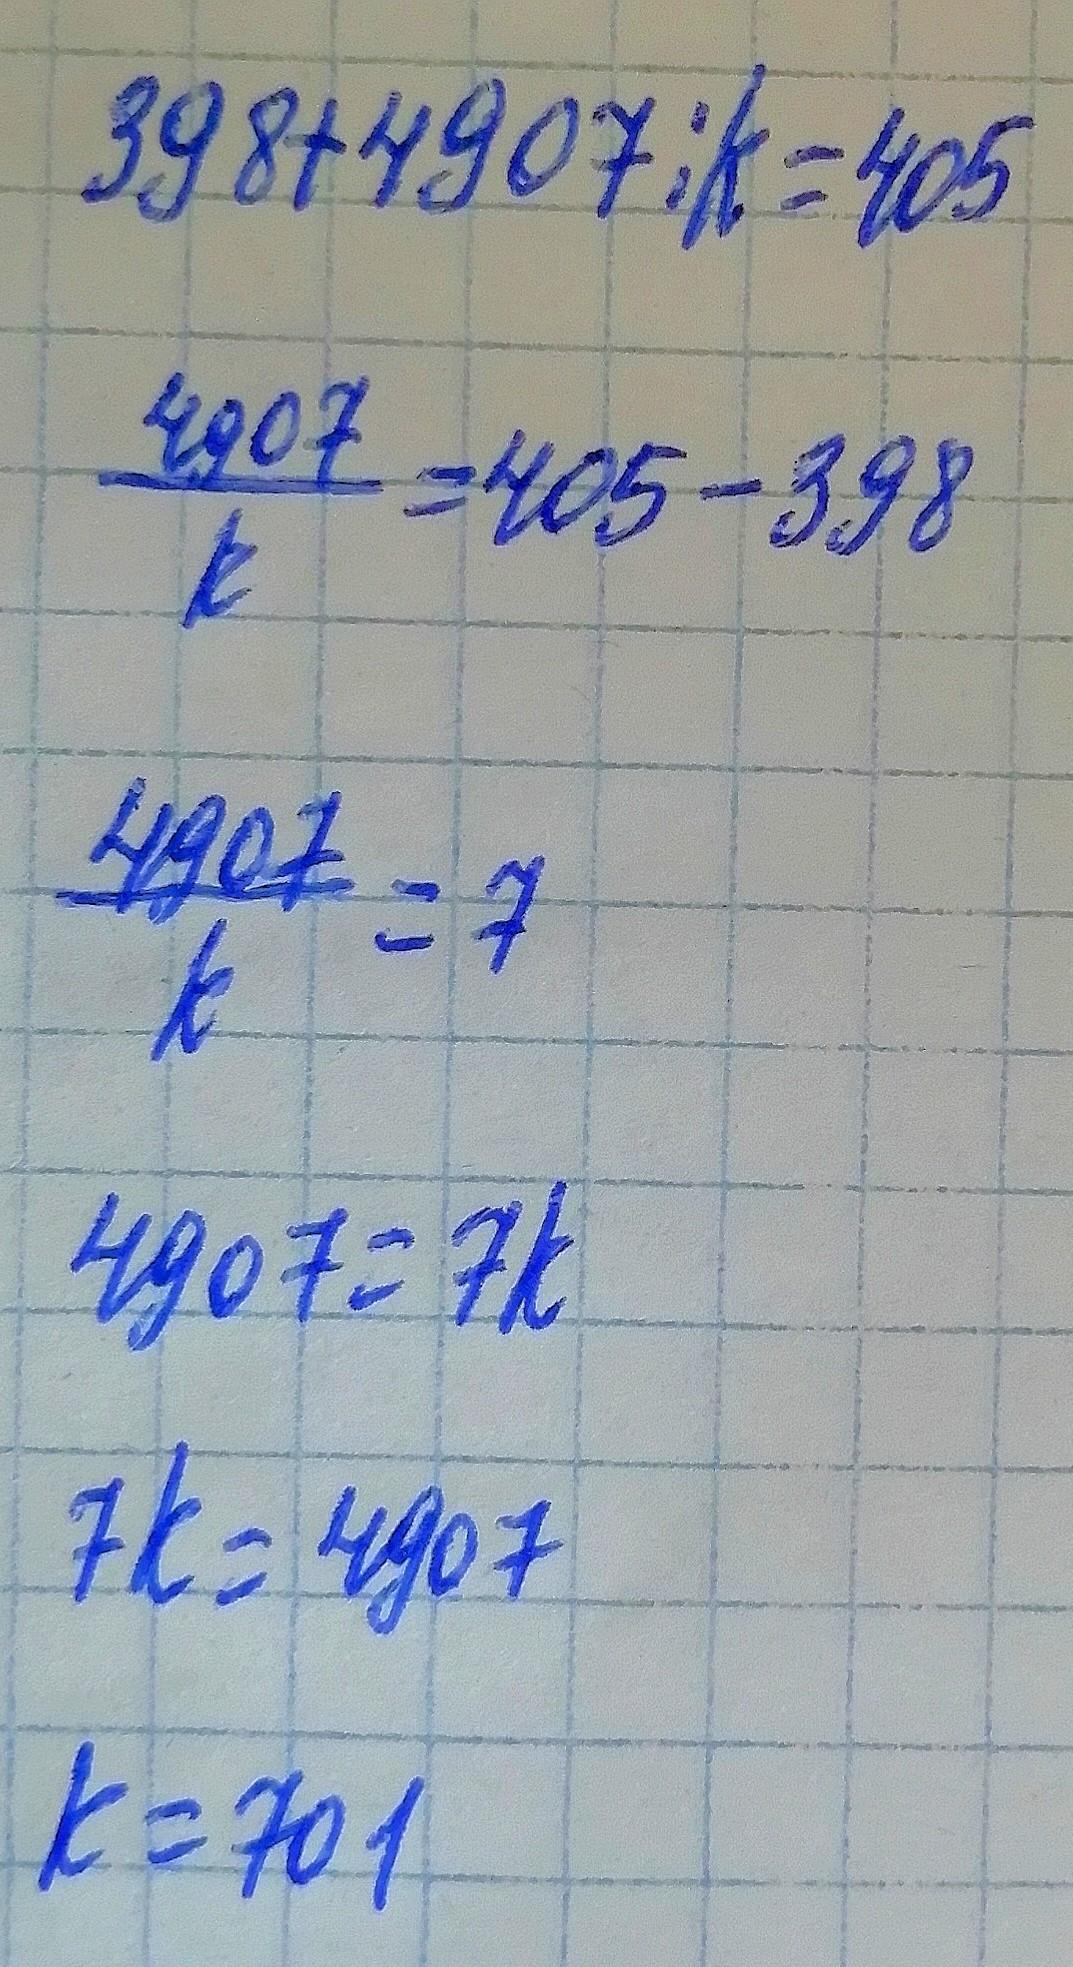 398+4907:k=405
4907/k=405-398
4907/k=7
4907=7k
7k=4907
k=701